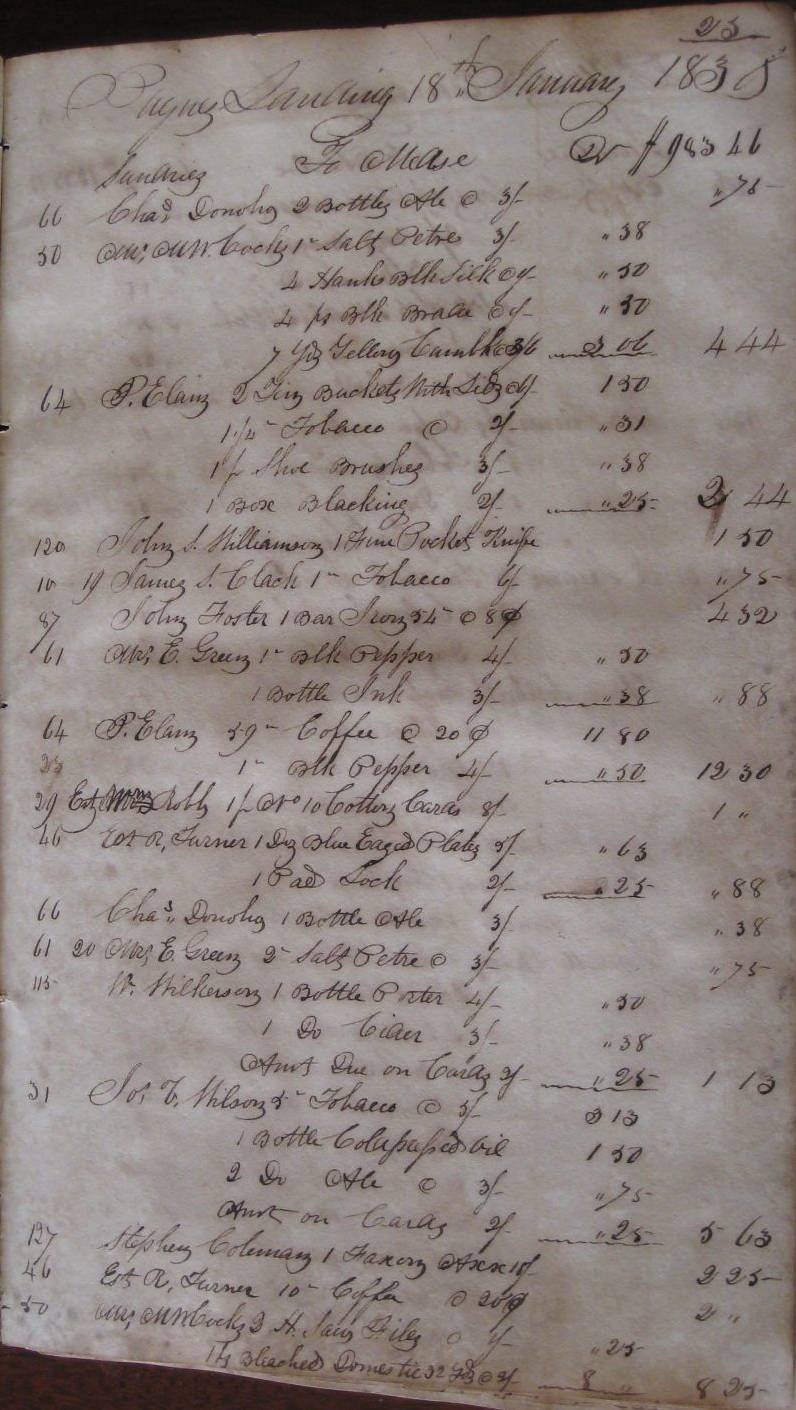 23
Paynes Landing 18th January 1835
Sundries To Mdse Dr $983 46
66 Chas Donoho 2 Bottles Ale @ 3/- " 75
50 Mr, M W. Cocks 1 - Salts Petre 3/- " 38
4 Hanks Blk Silk @ " 50
4 ps Blk Braid @ " 50
7 Yds Yellow @ 3/6 3 06 4 44
64 P. Elam 2 Tin Buckets With Lids @ 6/- 1 50
1 1/4 - Tobacco @ 2/- " 31
1 pr Shoe Brushes 3/- " 38
1 Box Blacking 2/- " 25 2 44
120 John S. Williamson 1 Fine Pocket Knife 1 50
10 19 James S. Clack 1 - Tobacco 6/- " 75
87 John Foster 1 Bar Iron 54 - @ 8¢ 4 32
61 Mrs E. Green 1 - Blk Pepper 4/- " 50
1 Bottle Ink 3/- " 38 " 88
64 P. Elam 59 - Coffee @ 20¢ 11 80
23 1 - Blk Pepper 4/- " 50 12 30
29 Est Robb 1 pr No 10 Cotton Cards 8/- 1 "
46 Est R, Turner 1 Doz Blue Eaged Plates 5/- " 63
1 Pad Lock 2/- " 25 " 88
66 Chas Donoho 1 Bottle Ale 3/ " 38
61 20 Mrs E. Green 2 - Salts Petre @ 3/- " 75
115 W. Wilkerson 1 Bottle Porter 4/- " 50
1 Do Cider 3/- " 38
Amt Due on Cards 2/- " 25 1 13
31 Jos T. Wilson 5 - Tobacco @ 5/- 3 13
1 Bottle Oil 1 50
2 Do Ale @ 3/- " 75
Amt on Cards 2/- " 25 5 63
127 Stephen Coleman 1 Axe 18/- 2 25
46 Est R, Turner 10 - Coffee @ 20¢ 2 "
50 Mr, M W Cocks 3 H. Saw Files @ " 25
1 ps Bleached Domestic 32 Yds @ 2/- 8 " 8 25